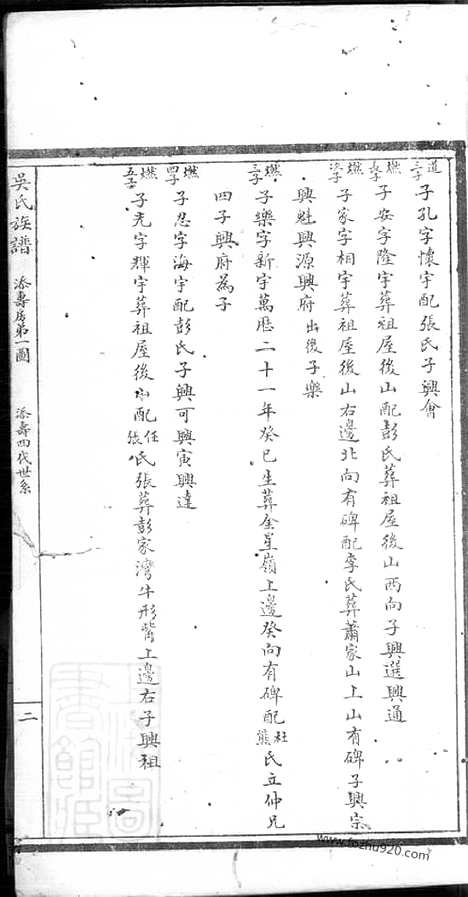 道三子 子孔字懷宇配張氏子興會
燃長子 子安字隆宇葬祖屋後山配彭氏葬祖屋後山西向子興選興通
燃次子 子家字相宇葬祖屋後山右邊北向有碑配李氏葬蕭家山上山有碑子興宗
興魁興源興府出後子樂
燃三子 子樂字新宇萬曆二十一年癸巳生葬金星嶺上邊癸向有碑配杜熊氏立仲兄
四子興府為子
燃四子 子忍字海宇配彭氏子興可興寅興達
燃五子 子充字輝宇葬祖屋後山配任張氏張葬彭家灣牛形背上邊右子興祖
吳氏族譜 添壽房第一圖 添壽四代世系 二
www.fozhu920.com